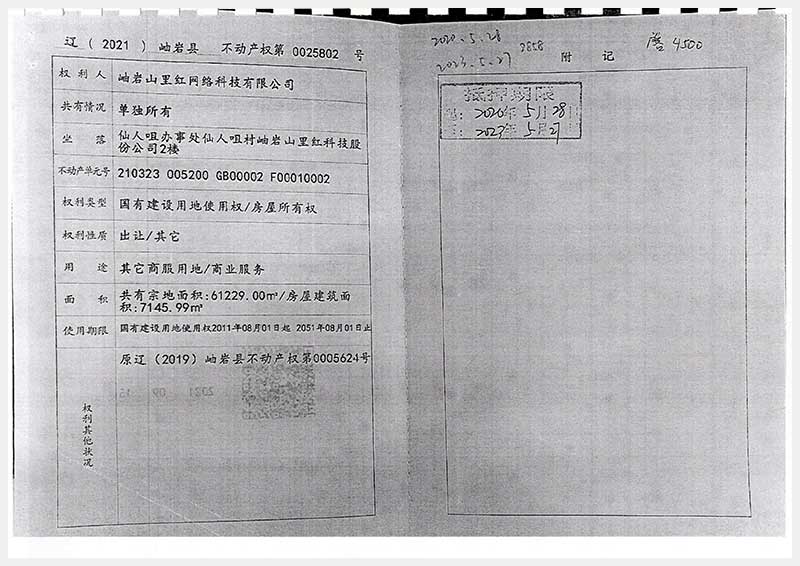 辽（2021）岫岩县 不动产权第 0025802 号
权利人 岫岩山里红网络科技有限公司
共有情况 单独所有
坐落 仙人咀办事处仙人咀村岫岩山里红科技股
份公司2楼
不动产单元号 210323 005200 GB00002 F00010002
权利类型 国有建设用地使用权/房屋所有权
权利性质 出让/其它
用途 其它商服用地/商业服务
面积 共有宗地面积:61229.00㎡/房屋建筑面
积:7145.99㎡
使用期限 国有建设用地使用权2011年08月01日起 2051年08月01日止
原辽（2019）岫岩县不动产权第0005624号
权利其他状况
2020.5.28
2023.5.27 2858
附记
4500
抵押期限
2020年5月28日
2023年5月27